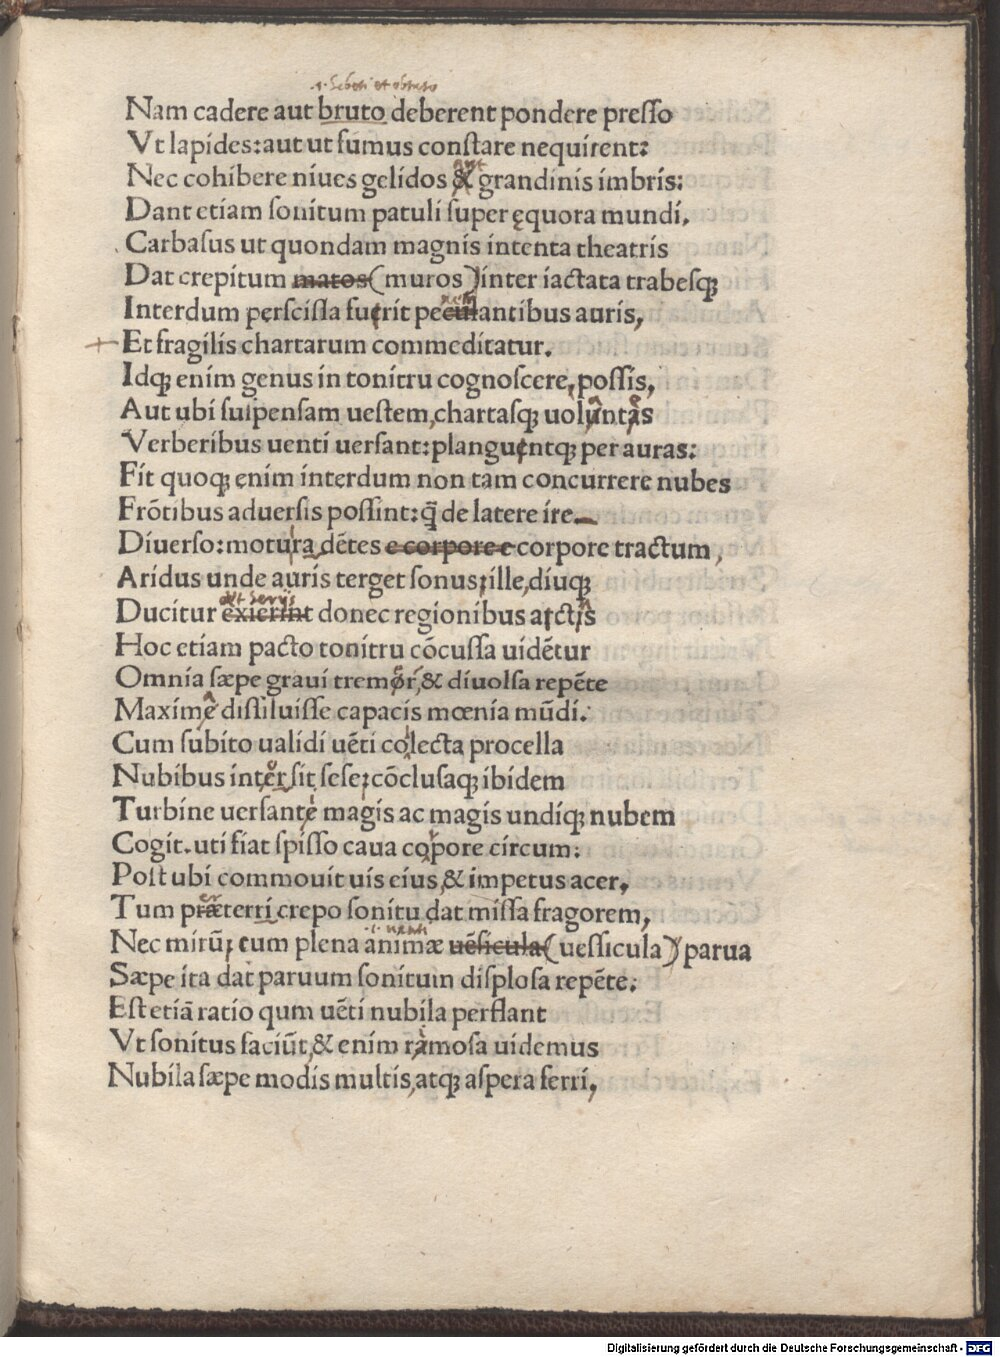 Nam cadere aut bruto deberent pondere preſſo
Vt lapides:aut ut fumus conſtare nequirent:
aut
Nec cohibere niues gelidos & grandinis imbris:
Dant etiam ſonitum patuli ſuper ęquora mundi.
Carbaſus ut quondam magnis intenta theatris
Dat crepitum matos (muros) inter iactata trabesqꝫ
Interdum perſciſſa fuerit peculantibus auris,
Et fragilis chartarum commeditatur.
Idqꝫ enim genus in tonitru cognoſcere, poſſis,
Aut ubi ſuſpenſam ueſtem, chartasqꝫ uoluntas
Verberibus uenti uerſant:planguentqꝫ per auras:
Fit quoqꝫ enim interdum non tam concurrere nubes
Frōtibus aduerſis poſſint:q̄ de latere ire.
Diuerſo:motura dētes e corpore e corpore tractum,
Aridus unde auris terget ſonus:ille, diuqꝫ
Ducitur exierint donec regionibus arctis
Hoc etiam pacto tonitru cōcuſſa uidētur
Omnia ſæpe graui tremor, & diuolſa repēte
Maxime diſſiluiſſe capacis mœnia mūdi.
Cum ſubito ualidi uēti colecta procella
Nubibus inter ſit ſeſe:cōcluſaqꝫ ibidem
Turbine uerſante magis ac magis undiqꝫ nubem
Cogit.uti fiat ſpiſſo caua copore circum:
Poſt ubi commouit uis eius,& impetus acer,
Tum præterri crepo ſonitu dat miſſa fragorem,
Nec mirū; cum plena animæ uēſicula (ueſſicula) parua
Sæpe ita dat paruum ſonitum diſploſa repēte:
Eſt etiā ratio qum uēti nubila perflant
Vt ſonitus faciūt,& enim ramoſa uidemus
Nubila ſæpe modis multis,atqꝫ aſpera ferri,
Digitalisierung gefördert durch die Deutsche Forschungsgemeinschaft - DFG